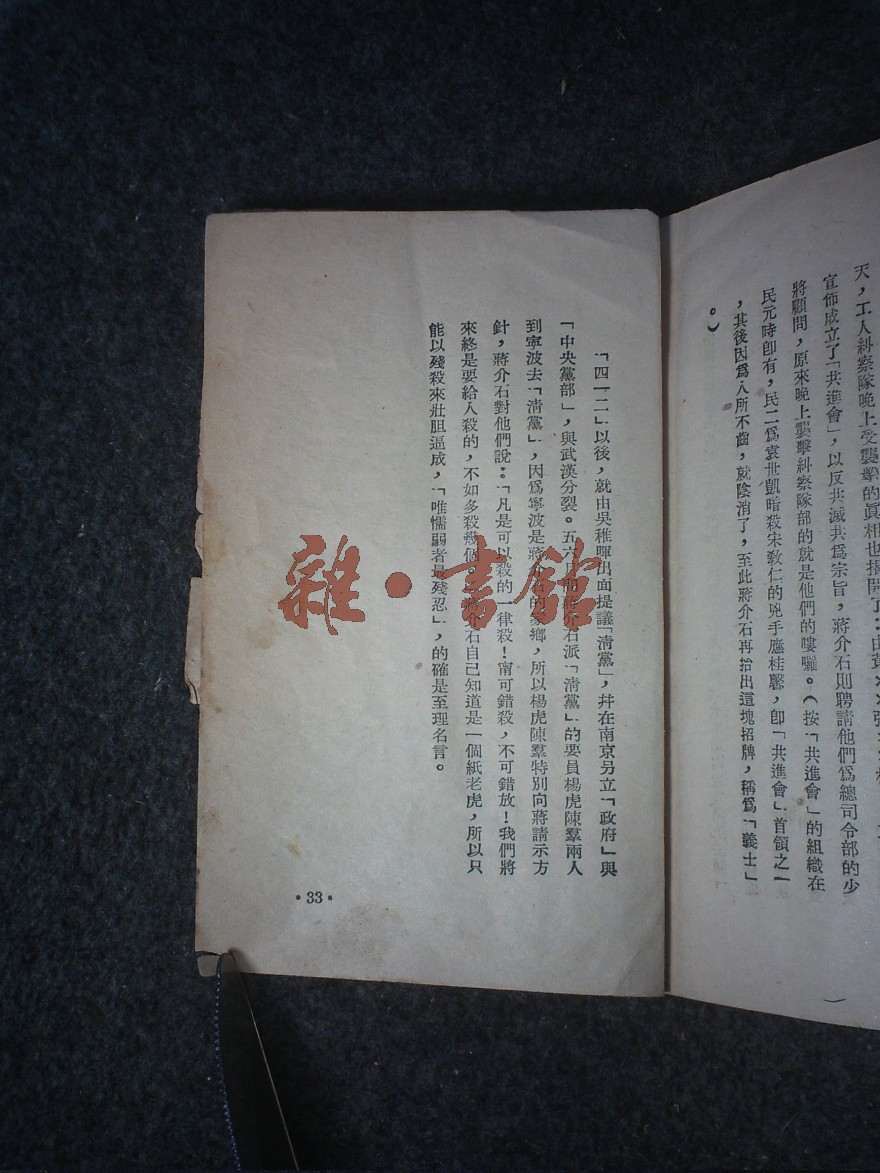 天，工人糾察隊晚上受襲擊的眞相也揭開了：由黃××張
宣佈成立了「共進會」，以反共滅共爲宗旨，蔣介石則聘請他們爲總司令部的少
將顧問，原來晚上襲擊糾察隊部的就是他們的嘍囉。（按「共進會」的組織在
民元時卽有，民二爲袁世凱暗殺宋敎仁的兇手應桂馨，卽「共進會」首領之一
，其後因爲人所不齒，就陰消了，至此蔣介石再抬出這塊招牌，稱爲「義士」
。）
「四一二」以後，就由吳稚暉出面提議「淸黨」，幷在南京另立「政府」與
「中央黨部」，與武漢分裂。五六月間蔣介石派「淸黨」的要員楊虎陳羣兩人
到寧波去「淸黨」，因爲寧波是蔣介石的家鄉，所以楊虎陳羣特別向蔣請示方
針，蔣介石對他們說：「凡是可以殺的一律殺！甯可錯殺，不可錯放！我們將
來終是要給人殺的，不如多殺幾個。」蔣介石自己知道是一個紙老虎，所以只
能以殘殺來壯胆逼成，「唯懦弱者最殘忍」，的確是至理名言。
•33•
雜•書館